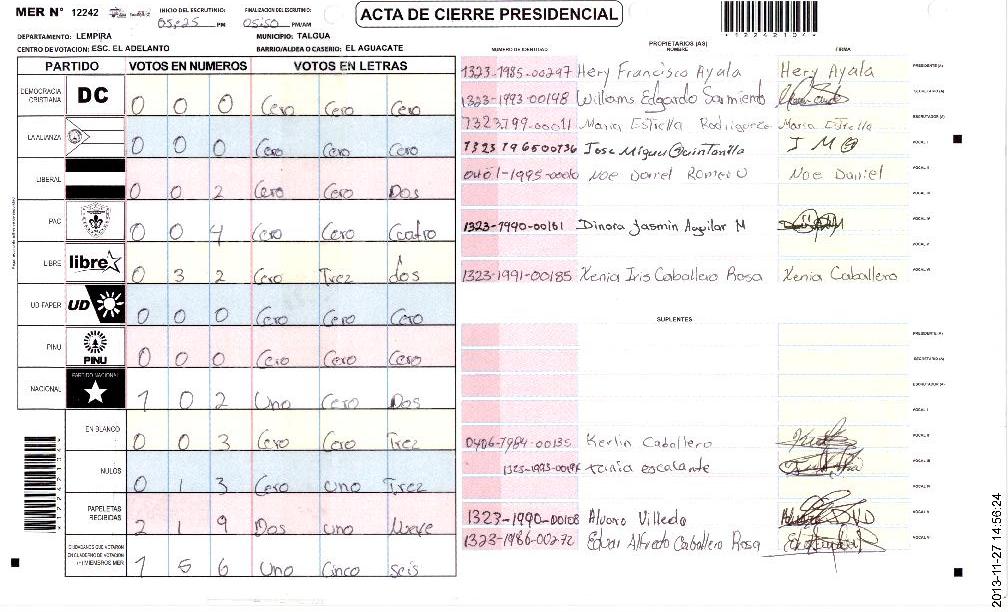 MER N° 12242
INICIO DEL ESCRUTINIO: 05:25 PM
FINALIZACION DEL ESCRUTINIO: 05:50 PM/AM
ACTA DE CIERRE PRESIDENCIAL
DEPARTAMENTO: LEMPIRA
MUNICIPIO: TALGUA
CENTRO DE VOTACION: ESC. EL ADELANTO
BARRIO/ALDEA O CASERIO: EL AGUACATE
PARTIDO VOTOS EN NUMEROS VOTOS EN LETRAS
DEMOCRACIA CRISTIANA DC 0 0 0 Cero Cero Cero
LA ALIANZA 0 0 0 Cero Cero Cero
LIBERAL 0 0 2 Cero Cero Dos
PAC 0 0 4 Cero Cero Cuatro
LIBRE libre 0 3 2 Cero Trez dos
UD FAPER UD 0 0 0 Cero Cero Cero
PINU PINU 0 0 0 Cero Cero Cero
NACIONAL PARTIDO NACIONAL 1 0 2 Uno Cero Dos
EN BLANCO 0 0 3 Cero Cero Trez
NULOS 0 1 3 Cero uno Trez
PAPELETAS RECIBIDAS 2 1 9 Dos uno Nueve
CIUDADANOS QUE VOTARON EN CUADERNO DE VOTACION (+) MIEMBROS MER 1 5 6 Uno Cinco seis
PROPIETARIOS (AS)
NUMERO DE IDENTIDAD NOMBRE FIRMA
1323-1985-00297 Hery Francisco Ayala Hery Ayala PRESIDENTE (A)
1323-1993-00148 Williams Edgardo Sarmiento SECRETARIO (A)
Maria Estrella Rodriguez Maria Estrella ESCRUTADOR (A)
Jose Miguel Quintanilla J M Q VOCAL I
Noe Daniel Romero Noe Daniel VOCAL II
VOCAL III
1323-1990-00161 Dinora Jasmin Aguilar M VOCAL IV
VOCAL V
1323-1991-00185 Xenia Iris Caballero Rosa Xenia Caballero VOCAL VI
SUPLENTES
PRESIDENTE (A)
SECRETARIO (A)
ESCRUTADOR (A)
VOCAL I
0406-1984-00135 Kerlin Caballero VOCAL II
escalante VOCAL III
VOCAL IV
1323-1990-00108 Alvaro Villeda VOCAL V
1323-1986-00272 Edvar Alfredo Caballero Rosa VOCAL VI
12242104
2013-11-27 14:56:24